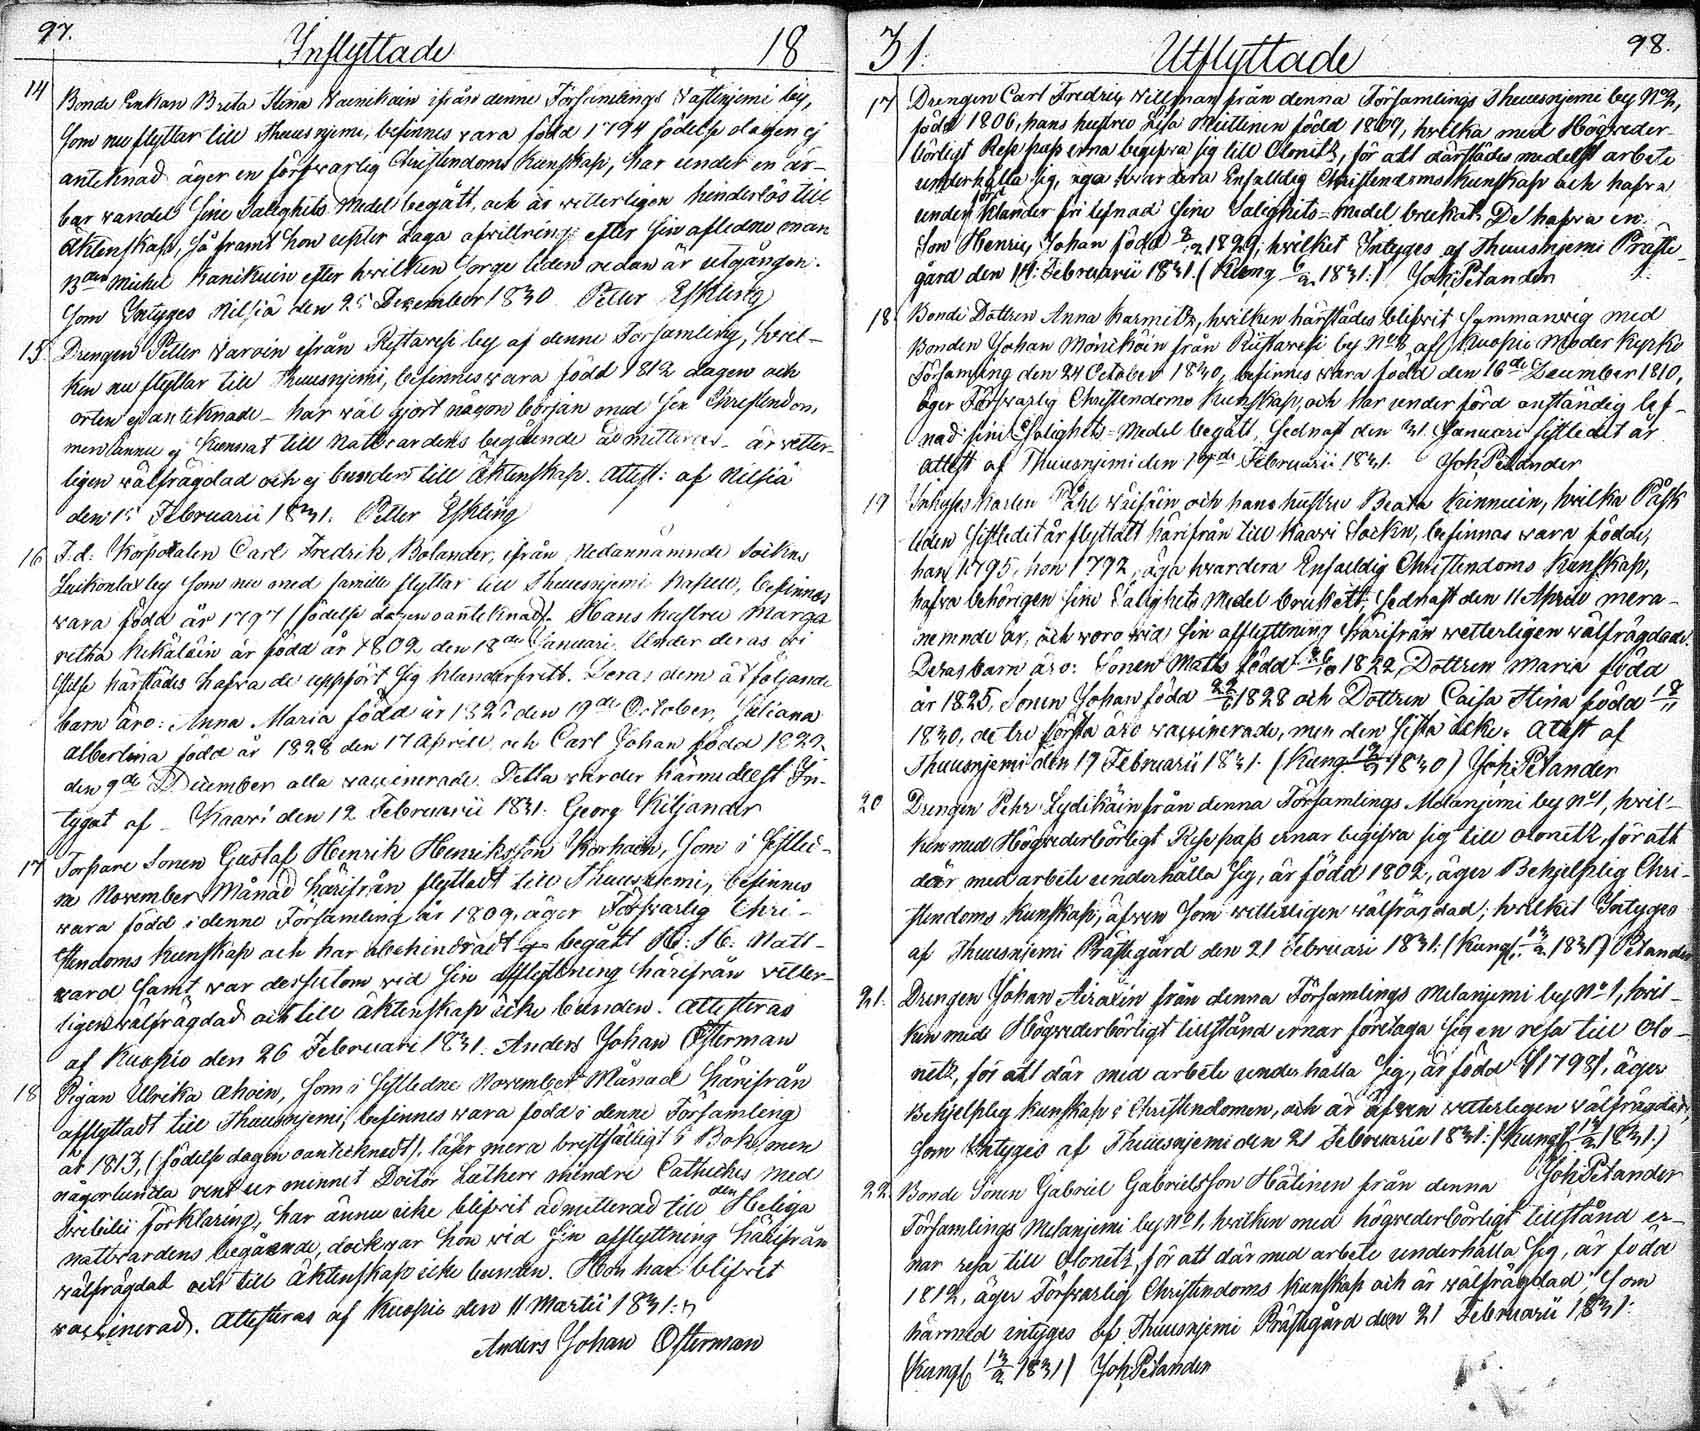 97.
Inflyttade 18
14 Bonde Enkan Breta Stina Vainikain ifrån denne Församlings Västinjemi by,
Som nu flyttar till Thuusnjemi, befinnes vara född 1794 födelse dagen ej
anteknad äger en försvarlig Christendoms Kunskap, har under en är-
bar vandel Sine Salighets Medel begått, och är vitterligen hinderlös till
Äktenskap, så framt hon efter Laga afvittring efter Sin aflednе man
Michel Kanikuin efter hvilken Sorge tiden redan är utgången.
Som Intyges Nilsiä den 25 December 1830 Petter Eskling
15 Drengen Petter Varoin ifrån Rystavesi by af denne Församling, hvil-
ken nu flyttar till Thuusnjemi, befinnes vara född 1812 dagen och
orten ej anteknade – har väl gjort någon början med Sin Christendom,
men ännu ej kunnat till Nattvardens begående admitteras – är vetter-
ligen välfrägdad och ej bunden till Äktenskap. Attest: af Nilsiä
den 15 Februarii 1831. Petter Eskling
16 F.d. Korporalen Carl Fredrik Bolander, ifrån nedannämnde Sokns
by Som nu med famille flyttar till Thuusnjemi befinnes
vara född år 1797 (födelse dagen oanteknad). Hans hustru Marga
retha Kekäläin är född år 1802 den 18de Januari. Under deras vi
stelse härstädes hafva de uppfört Sig klanderfritt. Deras dem åtföljande
barn äro: Anna Maria född år den 19de October, Juliana
Albertina född år 1828 den 17 Aprill och Carl Johan född 1829
den 9de December alla vaccinerade. Detta varder härmedelst In-
tygat af – Kaavi den 12 Februarii 1831. Georg Kiljander
17 Torpare Sonen Gustaf Henrik Henriksson Korhoin, Som i Sistled-
ne November Månad härifrån flyttadt till Thuusnjemi, befinnes
vara född i denne Församling år 1809, äger Försvarlig Chri-
stendoms kunskap och har obehindradt begått H: H: Natt-
vard Samt var desutom vid Sin afflyttning härifrån vitter-
ligen välfrägdad och till Äktenskap icke bunden. Attesteras
af Kuopio den 26 Februari 1831. Anders Johan Österman
18 Pigan Ulrika Ahoin, Som i Sistledne November Månad härifrån
afflyttadt till Thuusnjemi, befinnes vara född i denne Församling
år 1813, (födelse dagen oantecknadt). läser mera brystfälligt i Bok, men
någorlunda rent ur minnet Doctor Luthers mindre Catheches med
Svebilii Förklaring, har ännu icke blifvit admitterad till den Heliga
nattvardens begående, dock var hon vid Sin afflyttning härifrån
välfrägdad och till Äktenskap icke bunden. Hon har blifvit
vaccinerad. Attesteras af Kuopio den 11 Martii 1831.
Anders Johan Österman
31. Utflyttade 98.
17 Drengen Carl Fredric Willman från denna Församlings Thuusnjemi by No 2,
född 1806, hans hustru Lisa Miettinen född 1809, hvilka med Högveder-
börligt Respass ärna begifva sig till Olonitz, för att därstädes medelst arbete
underhålla sig, äga hvardera Enfaldig Christendoms kunskap och hafva
under för klander fri lefnad Sine Salighets-Medel brukat. De hafva en
Son Henric Johan född 8/2 1829, hvilket Intyges af Thuusnjemi Präste-
gård den 14 Februarii 1831. (Kung 6/2 1831.) Joh: Pelander
18. Bonde Dottren Anna Karmitz, hvilken härstädes blifvit Sammanvig med
Bonden Johan Mönikäin från Riistavesi by No 8 af Kuopio Moder Kyrko
Församling den 24 October 1830, befinnes vara född den 16de December 1810,
äger Försvarlig Christendoms Kunskap, och har under förd anständig lef-
nad sine Salighets-Medel begått, Sednast den 31 Januari Sistledit år
attest af Thuusnjemi den 19de Februarii 1831. Joh: Pelander
19 Inhyses Karlen Påhl Väisäin och hans hustru Beata Kinnuin, hvilka Påsk
tiden Sistledit år flyttatt härifrån till Kaavi Sockn, befinnas vara födde,
han 1795, hon 1792, äga hvardera Enfaldig Christendoms Kunskap,
hafva behörigen Sine Salighets Medel brukatt, Sednast den 11 Aprill
nemnde år, och voro vid Sin afflyttning härifrån vetterligen välfrägdade.
Deras barn äro: Sonen Maths född 1822, Dottren Maria född
år 1825, Sonen Johan född 1828 och Dottren Caisa Stina född 18/11
1830, de tre första äro vaccinerade, men den Sista icke. Attest af
Thuusnjemi den 19 Februarii 1831. (Kung. 1830) Joh: Pelander
20 Drengen Pehr Lydikäin från denna Församlings Melanjemi by No 1, hvil-
ken med Högvederbörligt Respass ernar begifva sig till Olonetz, för att
där med arbete underhålla Sig, är född 1802, äger Behjelplig Chri-
stendoms kunskap, äfven Som vitterligen välfrägdad; hvilket Intyges
af Thuusnjemi Prästegård den 21 Februari 1831. (Kung. 13/2 1831) Pelander
21. Drengen Johan Airaxin från denna Församlings Melanjemi by No 1, hvil-
ken med Högvederbörligt tillstånd ernar företaga Sig en resa till Olo-
netz, för att där med arbete underhålla Sig, är född 1798, äger
Behjelplig kunskap i Christendomen, och är äfven vetterligen välfrägdad,
Som Intyges af Thuusnjemi den 21 Februarii 1831. (Kung. 13/2 1831.)
Joh: Pelander
22. Bonde Sonen Gabriel Gabrielsson Hätinen från denna
Församlings Melanjemi by No 1, hvilken med högvederbörligt tillstånd er-
nar resa till Olonetz, för att där med arbete underhålla Sig, är född
1812, äger Försvarlig Christendoms kunskap och är välfrägdad, Som
härmed intyges af Thuusnjemi Prästegård den 21 Februarii 1831.
(Kung. 13/2 1831) Joh: Pelander